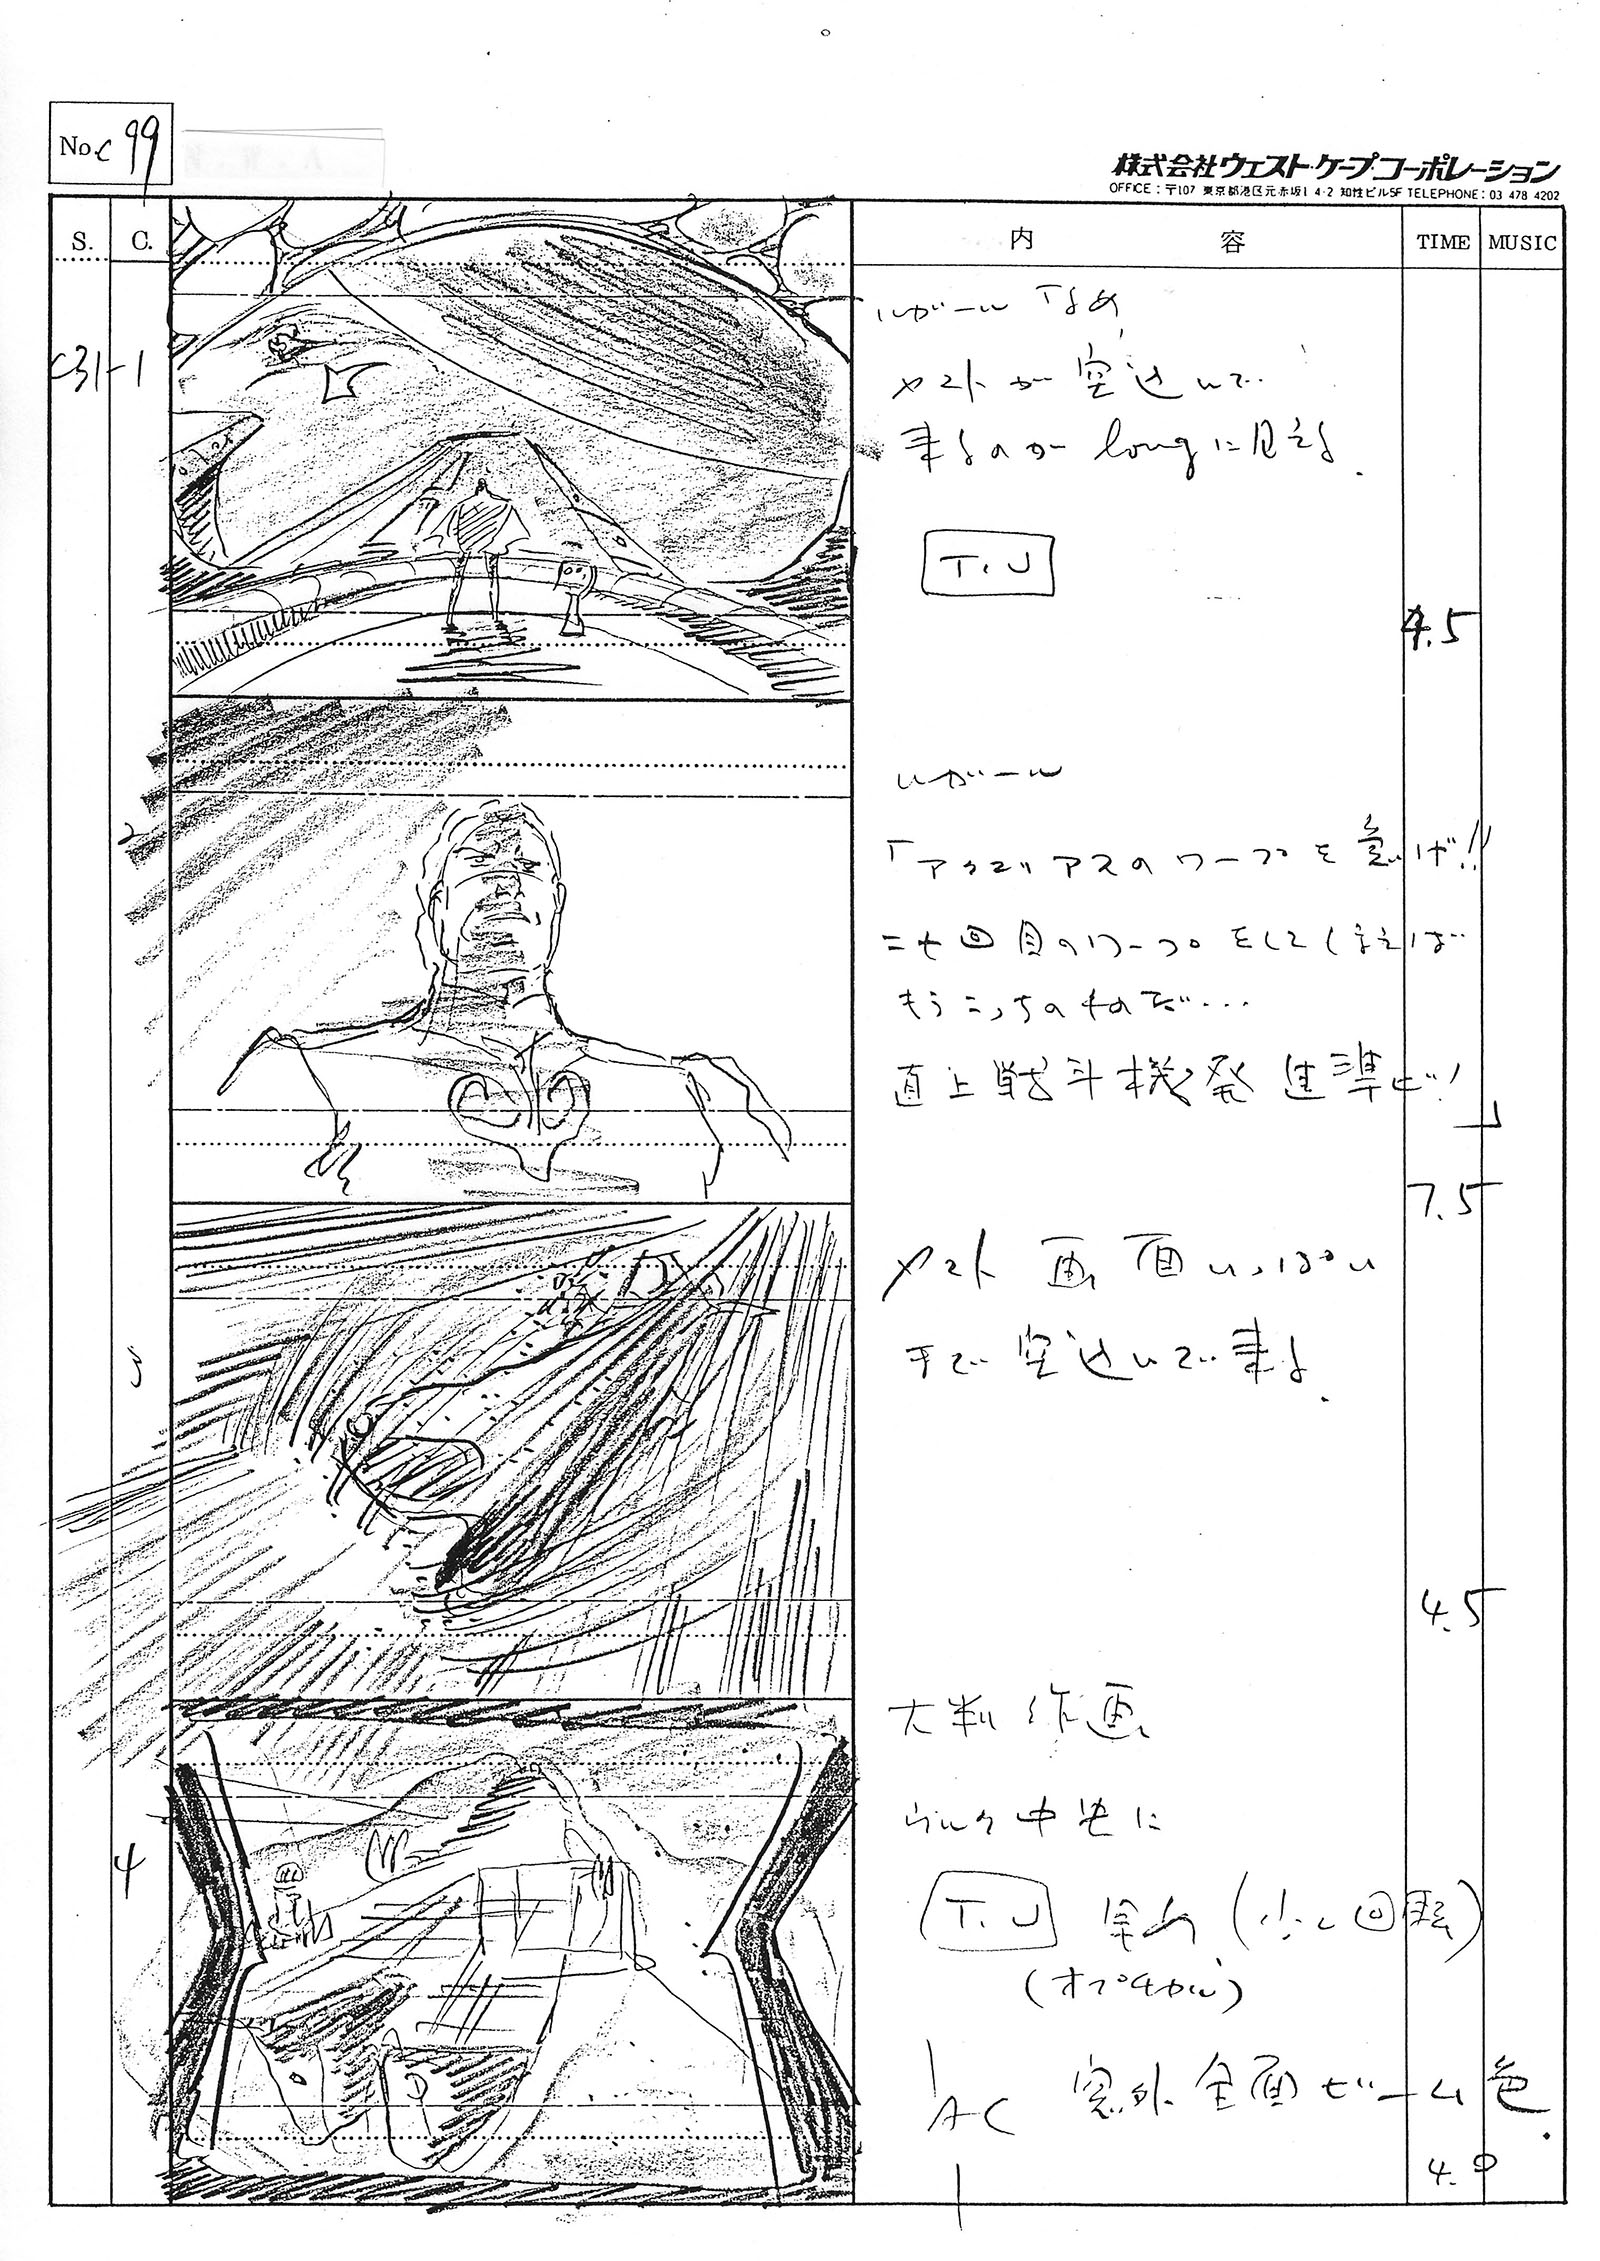 No.C 99
株式会社ウエスト・ケープ・コーポレーション
OFFICE：〒107 東京都港区元赤坂1 4-2 知性ビル5F TELEPHONE：03 478 4202
S. C. 内 容 TIME MUSIC
C31-1
ルガール なめ
ヤマトが突込いで
来るのが long に見える.
T.U
4.5
2
ルガール
「アクエリアスのワープを急げ!!
二十回目のワープをしてしまえば
もうこっちのものだ…
直上戦斗機発進準ビ！」
7.5
3
ヤマト 画面いっぱい
まで 突込いで来る.
4.5
4
大判作画
ウルク中央に
T.U
(少し回転)
(オプチカル)
AC 窓外全面ビーム色.
4.0